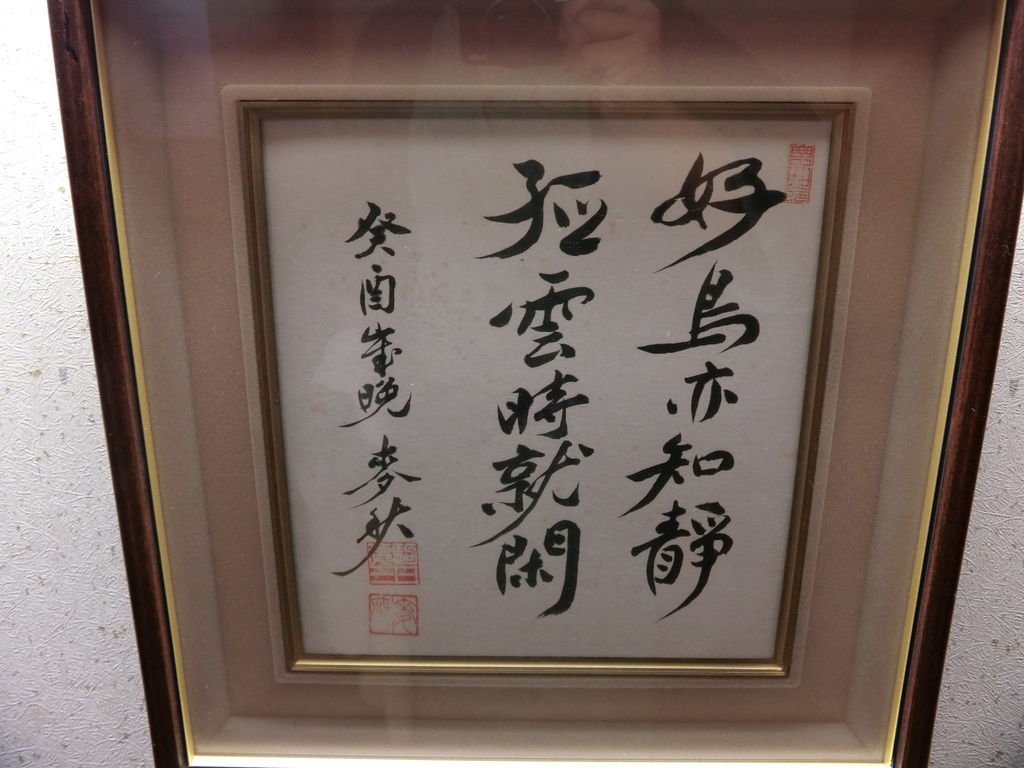 好鳥亦知靜
孤雲時就閑
癸酉歲晚 麥秋